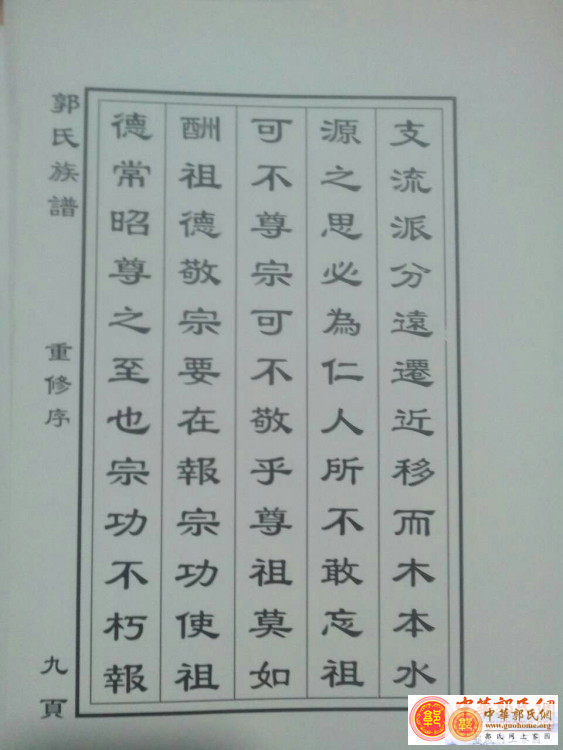 支流派分遠遷近移而木本水
源之思必為仁人所不敢忘祖
可不尊宗可不敬乎尊祖莫如
酬祖德敬宗要在報宗功使祖
德常昭尊之至也宗功不朽報
郭氏族譜
重修序
九頁
中華郭氏網
中華郭氏網
www.guohome.org
郭氏网上家园